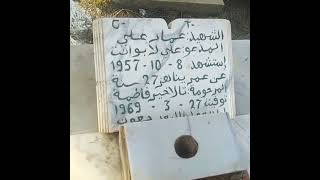 الشهيد عماد علي
المدعو علي لابوانت
إستشهد 8 - 10 - 1957
عن عمر يناهز 27 سنة
المرحومة تالاخير فاطمة
توفيت 27 - 3 - 1969